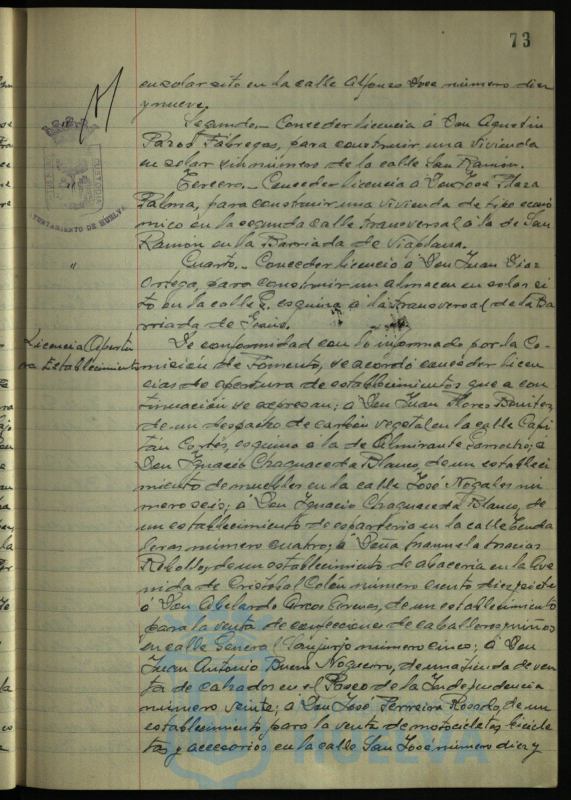 73
en solar sito en la calle Alfonso Doce número diez
y nueve.
Segundo.- Conceder licencia á Don Agustin
Fábregas, para construir una vivienda
en solar sin número de la calle San Ramón.
Tercero.- Conceder licencia á Don José Plaza
Palma, para construir una vivienda de tipo econó
mico en la segunda calle transversal á la de San
Ramón en la Barriada de Viaplana.
AYUNTAMIENTO DE HUELVA
" Cuarto.- Conceder licencia á Don Juan Diaz
Ortega, para construir un almacen en solar si
to en la calle esquina á la transversal de la Ba
rriada de
Licencia Apertu De conformidad con lo informado por la Co-
ra Establecimientos misión de Fomento, se acordó conceder licen
cias de apertura de establecimientos que a con
tinuación se expresan; á Don Juan Flores Benitez,
de un despacho de carbón vegetal en la calle Capi
tán Cortés, esquina á la de Almirante á
Don Ignacio Chaguaceda Blanco, de un estableci
miento de muebles en la calle José Nogales nú
mero seis; á Don Ignacio Chaguaceda Blanco, de
un establecimiento de esparteria en la calle
número cuatro; á Doña Manuela Macias
Rebollo, de un establecimiento de abaceria en la Ave
nida de Cristobal Colón número ciento diez y siete
á Don Abelardo Arcos de un establecimiento
para la venta de confecciones de caballeros y niños
en calle General Sanjurjo número cinco; á Don
Juan Antonio Bueno de una tienda de ven
ta de calzados en el Paseo de la Independencia
número veinte; á Don José Ferreira Rosado, de un
establecimiento para la venta de motocicletas, bicicle
tas y accesorios en la calle San José número diez y
HUELVA